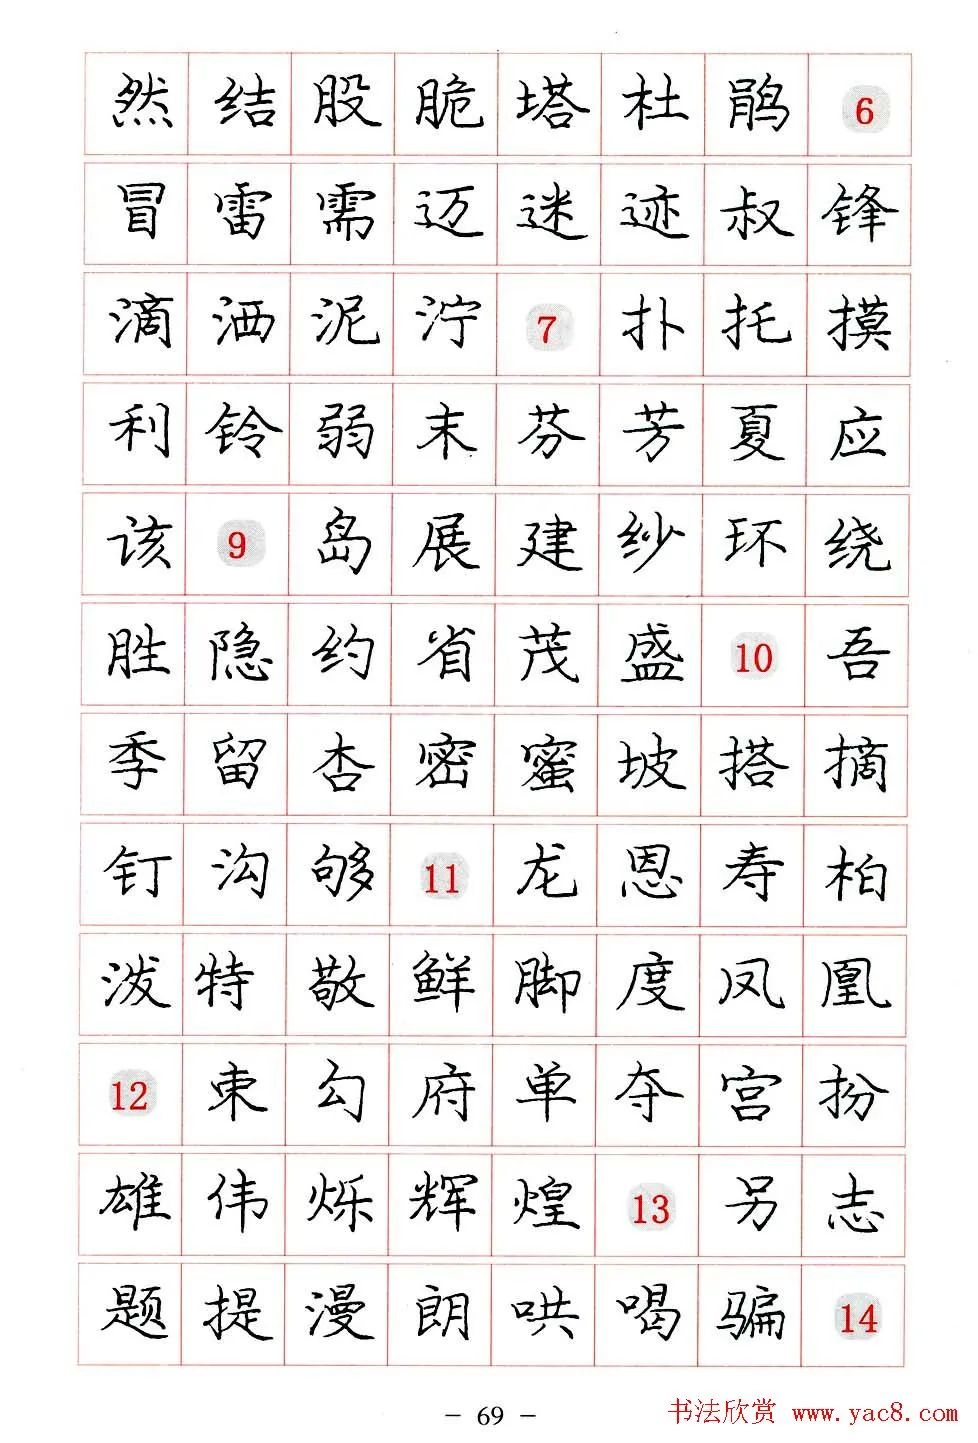 然 结 股 脆 塔 杜 鹃 6
冒 雷 需 迈 迷 迹 叔 锋
滴 洒 泥 泞 7 扑 托 摸
利 铃 弱 末 芬 芳 夏 应
该 9 岛 展 建 纱 环 绕
胜 隐 约 省 茂 盛 10 吾
季 留 杏 密 蜜 坡 搭 摘
钉 沟 够 11 龙 恩 寿 柏
泼 特 敬 鲜 脚 度 凤 凰
12 束 勾 府 单 夺 宫 扮
雄 伟 烁 辉 煌 13 另 志
题 提 漫 朗 哄 喝 骗 14
- 69 -
书法欣赏 www.yac8.com